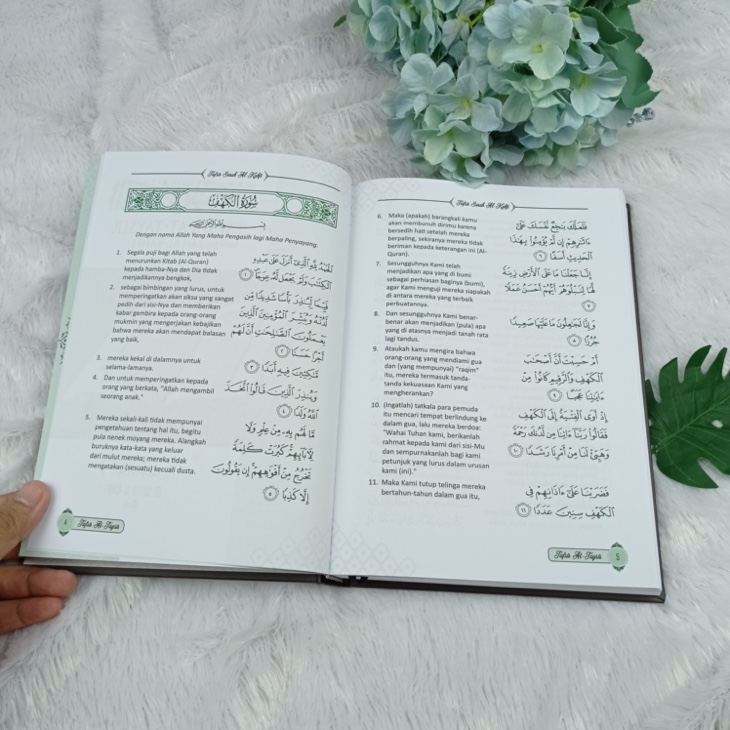 Tafsir Surah Al-Kahfi
سُورَةُ الْكَهْفِ
Dengan nama Allah Yang Maha Pengasih lagi Maha Penyayang.
1. Segala puji bagi Allah yang telah
menurunkan Kitab (Al-Quran)
kepada hamba-Nya dan Dia tidak
menjadikannya bengkok,
الْحَمْدُ لِلَّهِ الَّذِي أَنْزَلَ عَلَىٰ عَبْدِهِ
الْكِتَٰبَ وَلَمْ يَجْعَل لَّهُ عِوَجًا ١
2. sebagai bimbingan yang lurus, untuk
memperingatkan akan siksa yang sangat
pedih dari sisi-Nya dan memberikan
kabar gembira kepada orang-orang
mukmin yang mengerjakan kebajikan
bahwa mereka akan mendapat balasan
yang baik,
قَيِّمًا لِّيُنذِرَ بَأْسًا شَدِيدًا مِّن
لَّدُنْهُ وَيُبَشِّرَ الْمُؤْمِنِينَ الَّذِينَ
يَعْمَلُونَ الصَّٰلِحَٰتِ أَنَّ لَهُمْ
أَجْرًا حَسَنًا ٢
3. mereka kekal di dalamnya untuk
selama-lamanya.
مَّٰكِثِينَ فِيهِ أَبَدًا ٣
4. Dan untuk memperingatkan kepada
orang yang berkata, "Allah mengambil
seorang anak."
وَيُنذِرَ الَّذِينَ قَالُوا اتَّخَذَ
اللَّهُ وَلَدًا ٤
5. Mereka sekali-kali tidak mempunyai
pengetahuan tentang hal itu, begitu
pula nenek moyang mereka. Alangkah
buruknya kata-kata yang keluar
dari mulut mereka; mereka tidak
mengatakan (sesuatu) kecuali dusta.
مَّا لَهُم بِهِ مِنْ عِلْمٍ وَلَا
لِآبَائِهِمْ كَبُرَتْ كَلِمَةً
تَخْرُجُ مِنْ أَفْوَٰهِهِمْ إِن يَقُولُونَ
إِلَّا كَذِبًا ٥
4 Tafsir At-Taysir
Tafsir Surah Al-Kahfi
6. Maka (apakah) barangkali kamu
akan membunuh dirimu karena
bersedih hati setelah mereka
berpaling, sekiranya mereka tidak
beriman kepada keterangan ini (Al-
Quran).
فَلَعَلَّكَ بَٰخِعٌ نَّفْسَكَ عَلَىٰ
ءَاثَٰرِهِمْ إِن لَّمْ يُؤْمِنُوا بِهَٰذَا
الْحَدِيثِ أَسَفًا ٦
7. Sesungguhnya Kami telah
menjadikan apa yang di bumi
sebagai perhiasan baginya (bumi),
agar Kami menguji mereka siapakah
di antara mereka yang terbaik
perbuatannya.
إِنَّا جَعَلْنَا مَا عَلَى الْأَرْضِ زِينَةً
لَّهَا لِنَبْلُوَهُمْ أَيُّهُمْ أَحْسَنُ عَمَلًا
٧
8. Dan sesungguhnya Kami benar-
benar akan menjadikan (pula) apa
yang di atasnya menjadi tanah rata
lagi tandus.
وَإِنَّا لَجَٰعِلُونَ مَا عَلَيْهَا صَعِيدًا
جُرُزًا ٨
9. Ataukah kamu mengira bahwa
orang-orang yang mendiami gua
dan (yang mempunyai) "raqim"
itu, mereka termasuk tanda-
tanda kekuasaan Kami yang
mengherankan?
أَمْ حَسِبْتَ أَنَّ أَصْحَٰبَ
الْكَهْفِ وَالرَّقِيمِ كَانُوا مِنْ
ءَايَٰتِنَا عَجَبًا ٩
10. (Ingatlah) tatkala para pemuda
itu mencari tempat berlindung ke
dalam gua, lalu mereka berdoa:
"Wahai Tuhan kami, berikanlah
rahmat kepada kami dari sisi-Mu
dan sempurnakanlah bagi kami
petunjuk yang lurus dalam urusan
kami (ini)."
إِذْ أَوَى الْفِتْيَةُ إِلَى الْكَهْفِ
فَقَالُوا رَبَّنَا ءَاتِنَا مِن لَّدُنكَ رَحْمَةً
وَهَيِّئْ لَنَا مِنْ أَمْرِنَا رَشَدًا ١٠
11. Maka Kami tutup telinga mereka
bertahun-tahun dalam gua itu,
فَضَرَبْنَا عَلَىٰ ءَاذَانِهِمْ فِي
الْكَهْفِ سِنِينَ عَدَدًا ١١
Tafsir At-Taysir 5